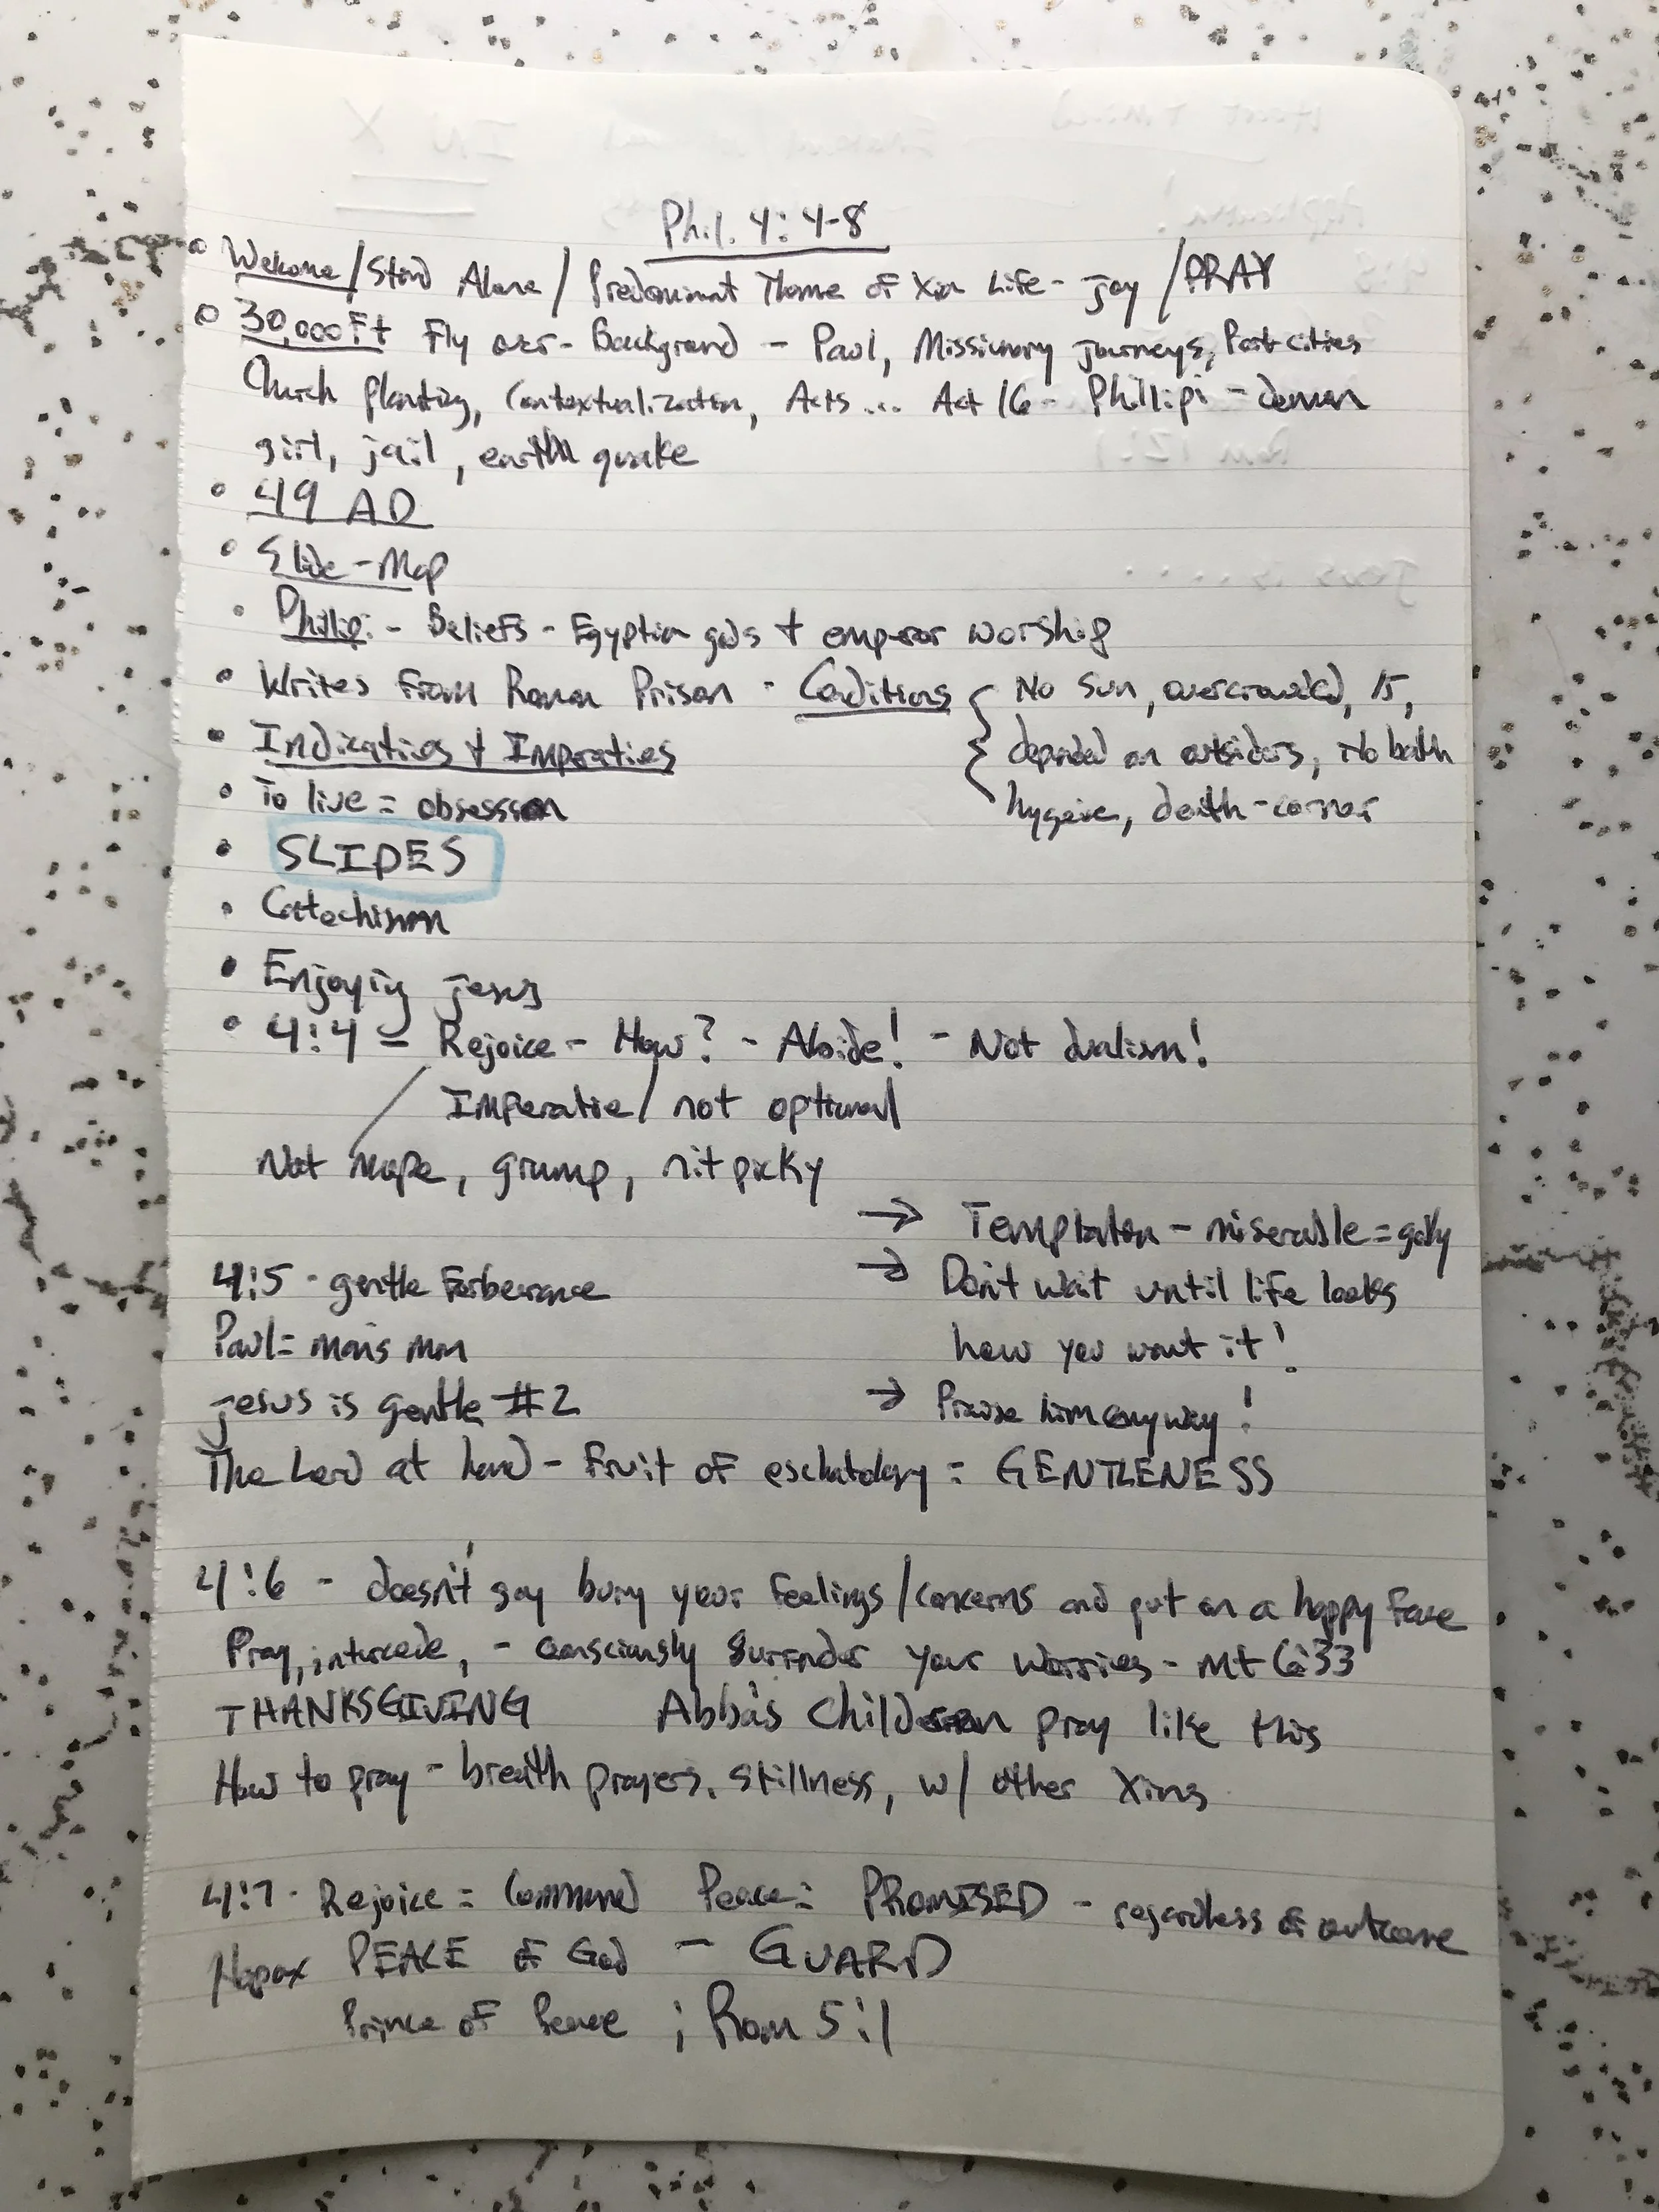 Phil. 4:4-8
• Welcome / Stand Alone / Predominant Theme of Xian Life - joy / PRAY
• 30,000 Ft Fly over - Background - Paul, Missionary journeys, Port cities
Church planting, Contextualization, Acts... Act 16 - Phillipi - demon
girl, jail, earth quake
• 49 AD
• Slide - Map
• Philipi - Beliefs - Egyptian gods + emperor worship
• Writes from Roman Prison - Conditions { No sun, overcrowded, 15,
depended on outsiders, No bath
hygeine, death - corner
• Indicaties + Imperaties
• To live = obsession
• SLIDES
• Catechism
• Enjoying Jesus
• 4:4 - Rejoice - How? - Abide! - Not dualism!
Imperatie / not optional
Not mope, grump, nit picky
→ Temptation - miserable = godly
→ Don't wait until life looks
how you want it!
→ Praise him anyway!
4:5 - gentle Forberance
Paul = mans man
Jesus is gentle #2
The Lord at hand - fruit of eschatology = GENTLENESS
4:6 - doesn't say bury your feelings / concerns and put on a happy face
Pray, intercede, - consciously surrender your worries - Mt 6:33
THANKSGIVING Abba's children pray like this
How to pray - breath prayers, stillness, w/ other Xians
4:7 - Rejoice = Command Peace = PROMISED - regardless of outcome
Hapax PEACE of God - GUARD
Prince of Peace ; Rom 5:1